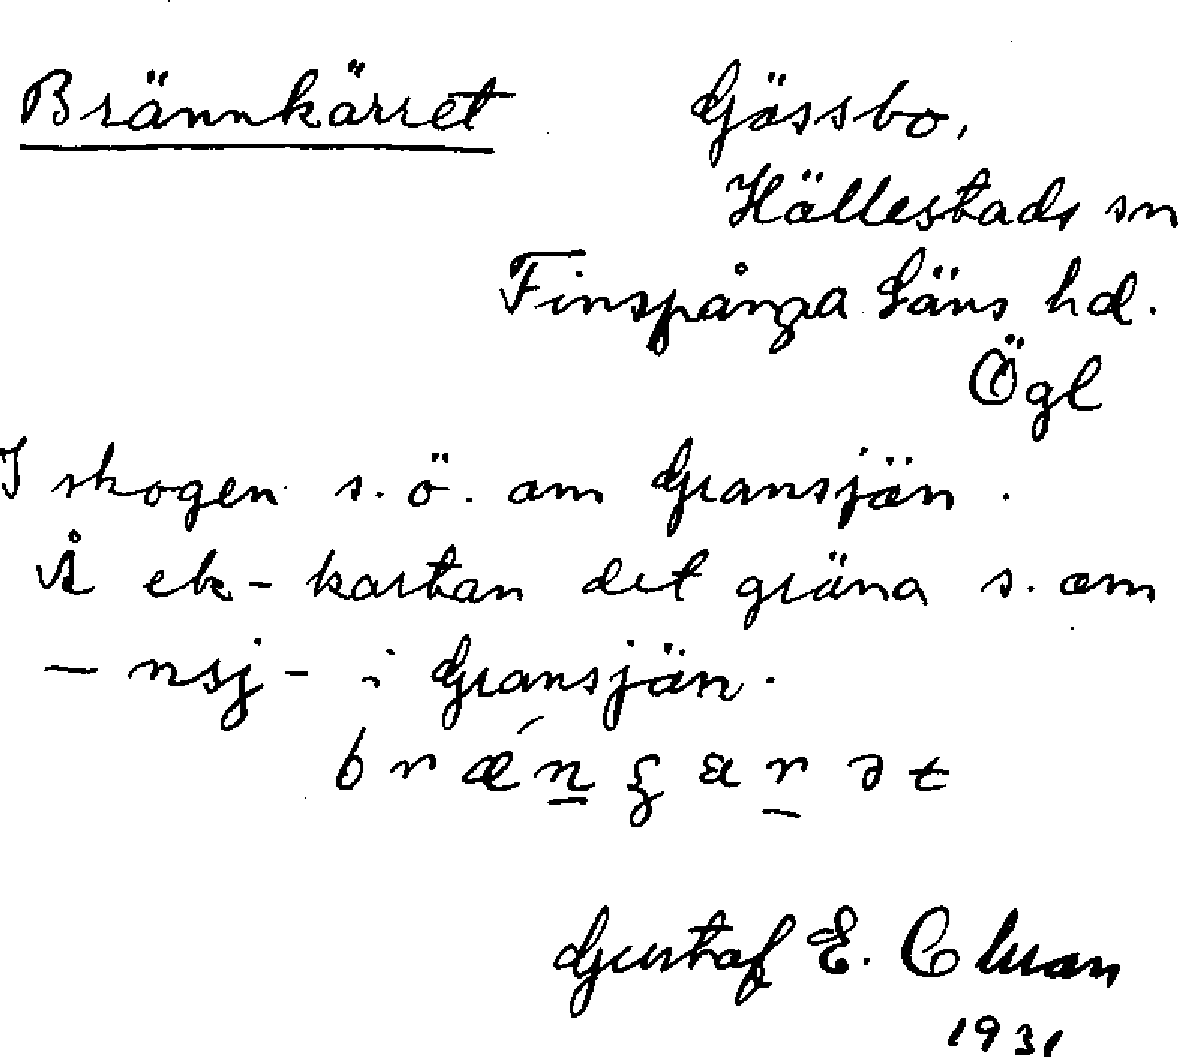 Brännkärret Gössbo,
Hällestads sn
Finspånga Läns hd.
Ögl
I skogen s.ö. om Gransjön.
Å ek-kartan det gröna s. om
- nsj - i Gransjön.
Gustaf E.
1931